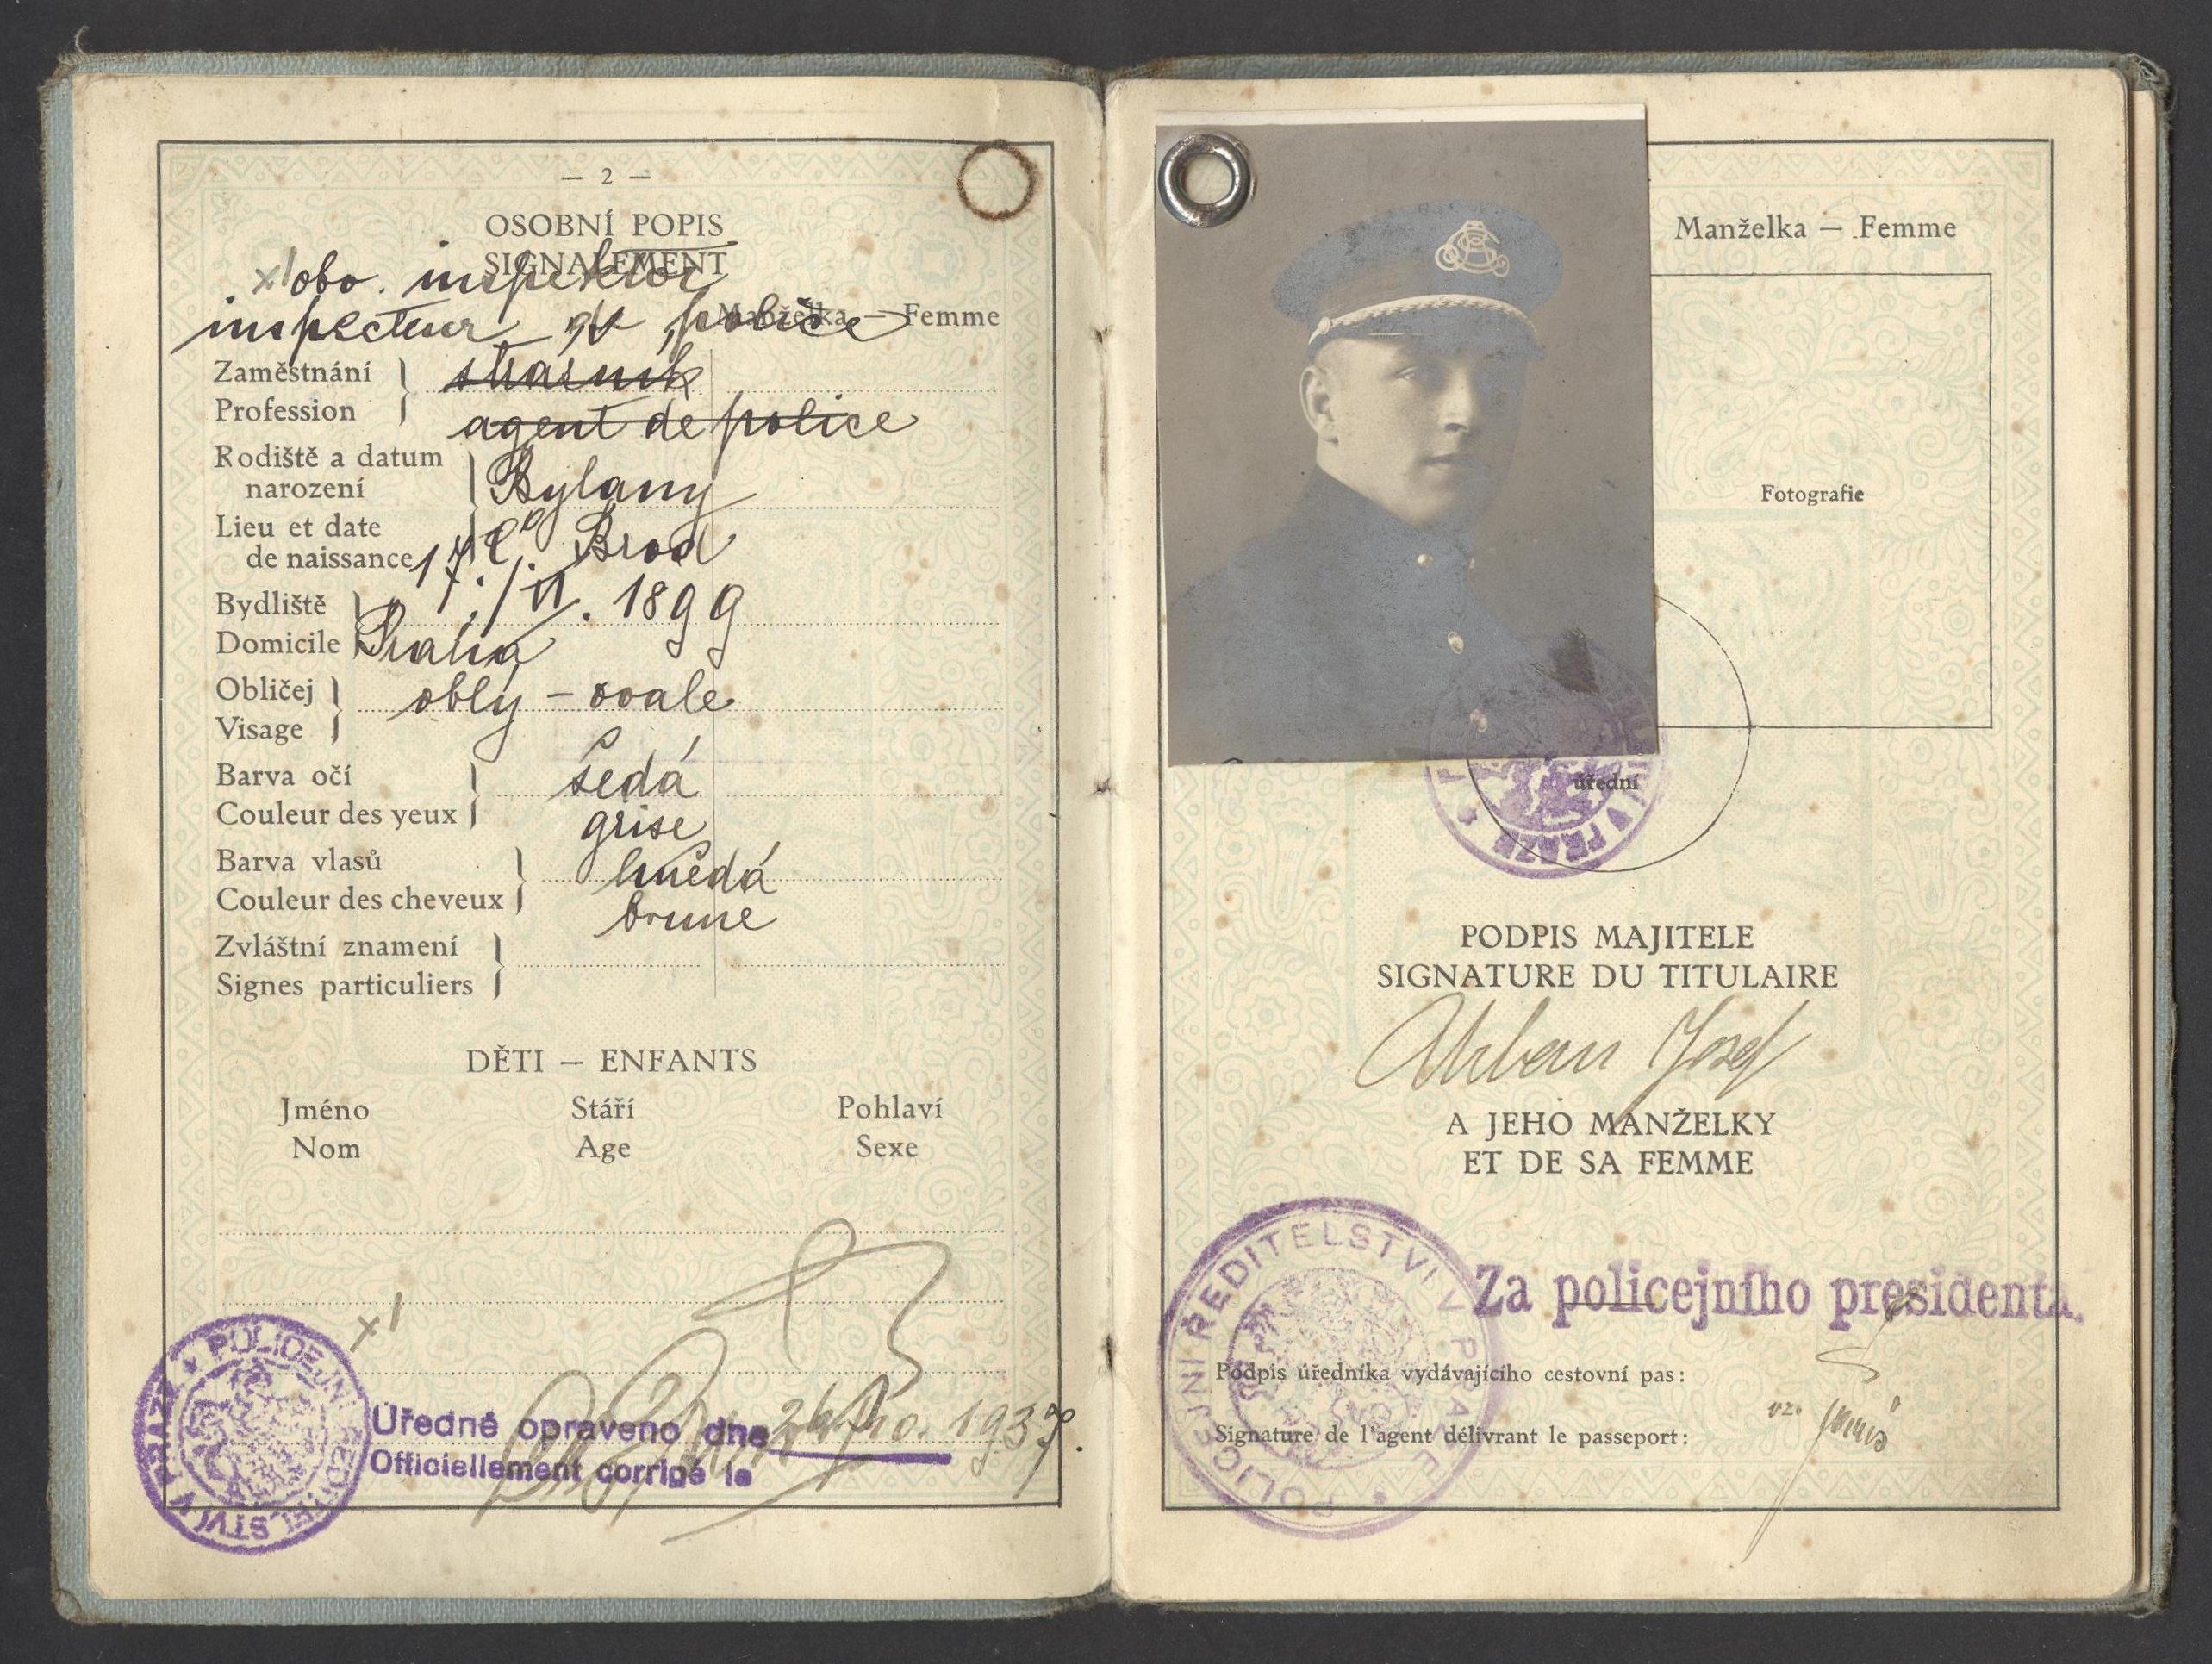 — 2 —
OSOBNÍ POPIS
SIGNALEMENT
x/ obv. inspektor
inspecteur de police
Manželka — Femme
Zaměstnání strážník
Profession agent de police
Rodiště a datum
narození Bylany
Lieu et date Č. Brod
de naissance 17./VI. 1899
Bydliště
Domicile Praha
Obličej oblý - ovale
Visage
Barva očí šedá
Couleur des yeux grise
Barva vlasů hnědá
Couleur des cheveux brune
Zvláštní znamení
Signes particuliers
DĚTI — ENFANTS
Jméno Stáří Pohlaví
Nom Age Sexe
x/
POLICEJNÍ ŘEDITELSTVÍ V PRAZE
Úředně opraveno dne
Officiellement corrigé le
Manželka — Femme
Fotografie
úřední
V PRAZE
PODPIS MAJITELE
SIGNATURE DU TITULAIRE
Urban Josef
A JEHO MANŽELKY
ET DE SA FEMME
POLICEJNÍ ŘEDITELSTVÍ V PRAZE
Za policejního presidenta.
Podpis úředníka vydávajícího cestovní pas:
Signature de l'agent délivrant le passeport: